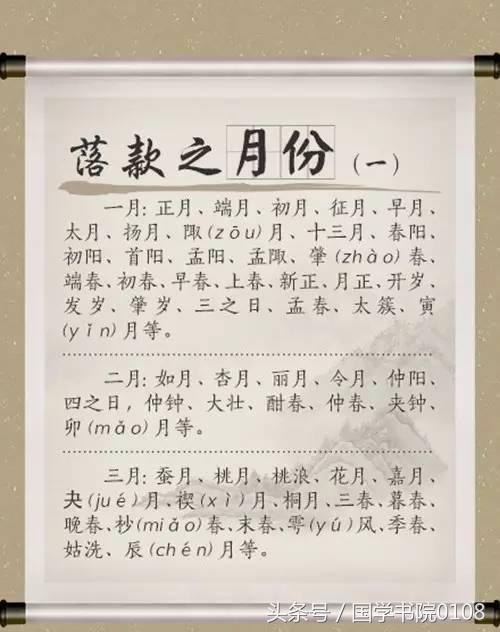 落款之月份(一)
一月: 正月、端月、初月、征月、早月、
太月、扬月、陬(zōu)月、十三月、春阳、
初阳、首阳、孟阳、孟陬、肇(zhào)春、
端春、初春、早春、上春、新正、月正、开岁、
发岁、肇岁、三之日、孟春、太簇、寅
(yǐn)月等。
二月: 如月、杏月、丽月、令月、仲阳、
四之日，仲钟、大壮、酣春、仲春、夹钟、
卯(mǎo)月等。
三月: 蚕月、桃月、桃浪、花月、嘉月、
夬(jué)月、禊(xì)月、桐月、三春、暮春、
晚春、杪(miǎo)春、末春、雩(yú)风、季春、
姑洗、辰(chén)月等。
头条号 / 国学书院0108